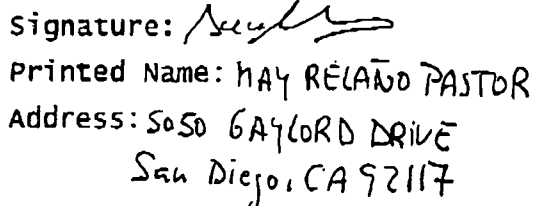 Signature:
Printed Name: MAY RELAÑO PASTOR
Address: 5050 GAYLORD DRIVE
San Diego, CA 92117